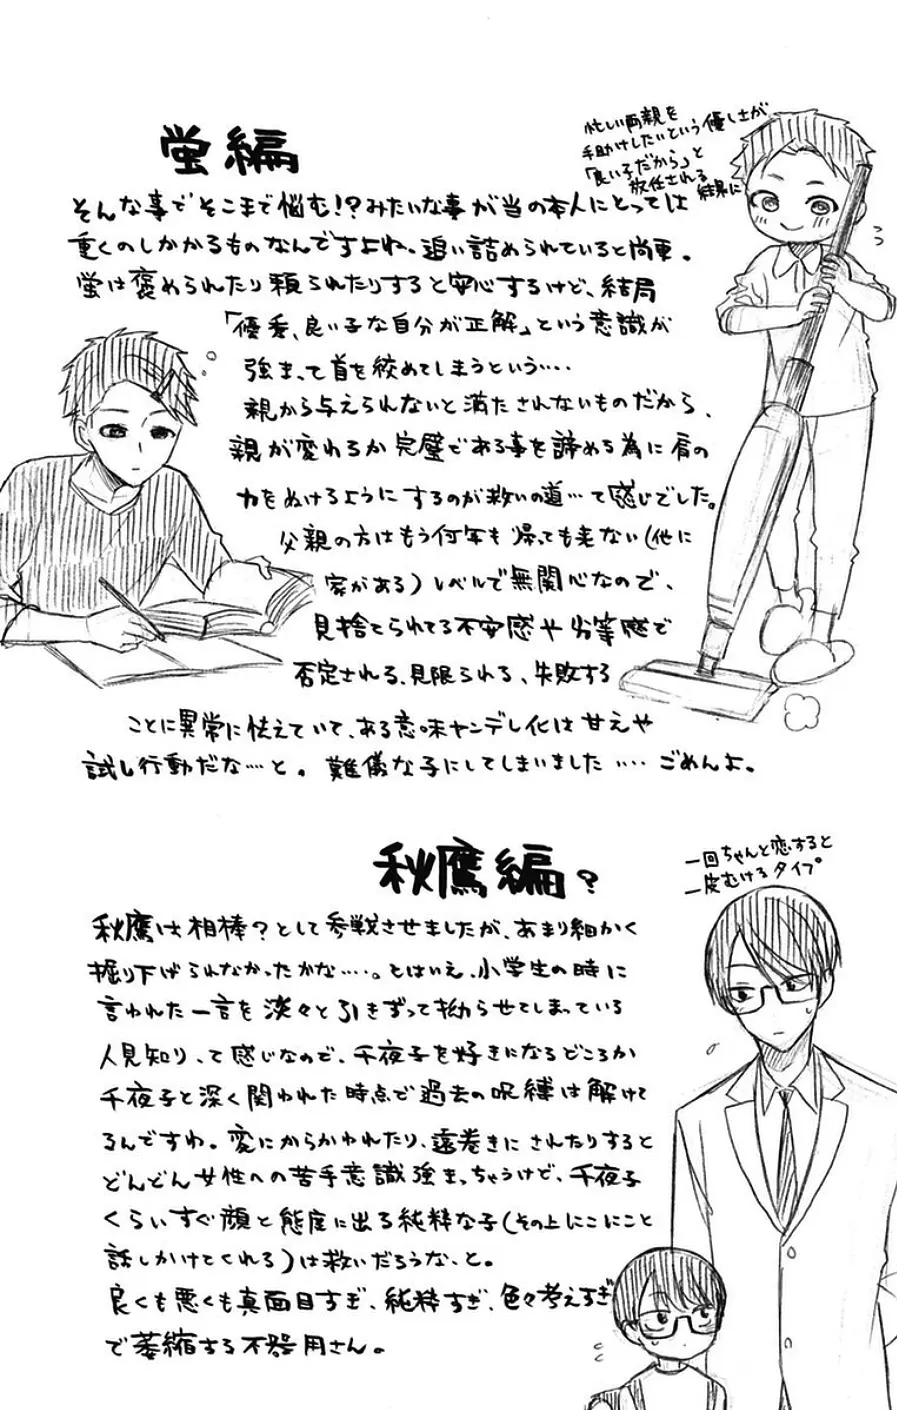 蛍編
忙しい両親を
手助けしたいという優しさが
「良い子だから」と
放任される
結果に
そんな事でそこまで悩む!?みたいな事が当の本人にとっては
重くのしかかるものなんですよね。追い詰められていると尚更。
蛍は褒められたり頼られたりすると安心するけど、結局
「優秀、良い子な自分が正解」という意識が
強まって首を絞めてしまうという‥‥
親から与えられないと満たされないものだから、
親が変わるか完璧である事を諦める為に肩の
力をぬけるようにするのが救いの道…って感じでした。
父親の方はもう何年も帰っても来ない(他に
家がある)レベルで無関心なので、
見捨てられてる不安感や劣等感で
否定される、見限られる、失敗する
ことに異常に怯えていて、ある意味ヤンデレ化は甘えや
試し行動だな…と。難儀な子にしてしまいました‥‥ごめんよ。
秋鷹編?
一回ちゃんと恋すると
一皮むけるタイプ
秋鷹は相棒?として参戦させましたが、あまり細かく
掘り下げられなかったかな‥‥。とはいえ、小学生の時に
言われた一言を淡々と引きずって拗らせてしまっている
人見知りって感じなので、千夜子を好きになるどころか
千夜子と深く関われた時点で過去の呪縛は解けて
るんですわ。変にからかわれたり、遠巻きにされたりすると
どんどん女性への苦手意識強まっちゃうけど、千夜子
くらいすぐ顔と態度に出る純粋な子(その上にこにこと
話しかけてくれる)は救いだろうな、と。
良くも悪くも真面目すぎ、純粋すぎ、色々考えすぎ
で萎縮する不器用さん。